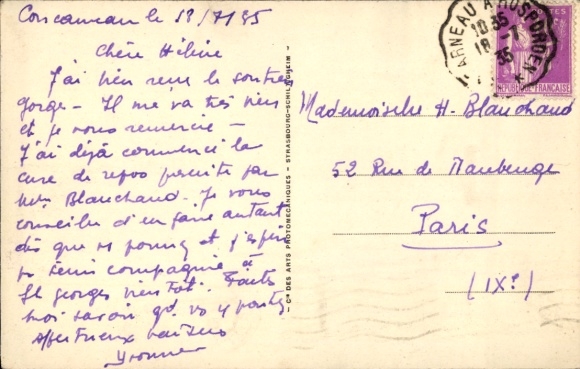 Concarneau le 18/7/35
Chère Hélène
J'ai bien reçu le soutien
gorge – Il me va très bien
et je vous remercie –
J'ai déjà commencé la
cure de repos prescrite par
Blanchaud. Je vous
conseille d'en faire autant
dès que v. pourrez et j'espère
v. tenir compagnie à
St georges bientôt. Faites
moi savoir qd. vo y partez
affectueux baisers
Yvonne
– Cie DES ARTS PHOTOMÉCANIQUES – STRASBOURG-SCHILTIGHEIM –
CARNEAU A ROSPORDEN
10 35
18 - 7
35
POSTES
REPUBLIQUE FRANÇAISE
Mademoiselle H. Blanchaud
52 Rue de Maubeuge
Paris
(IXe)